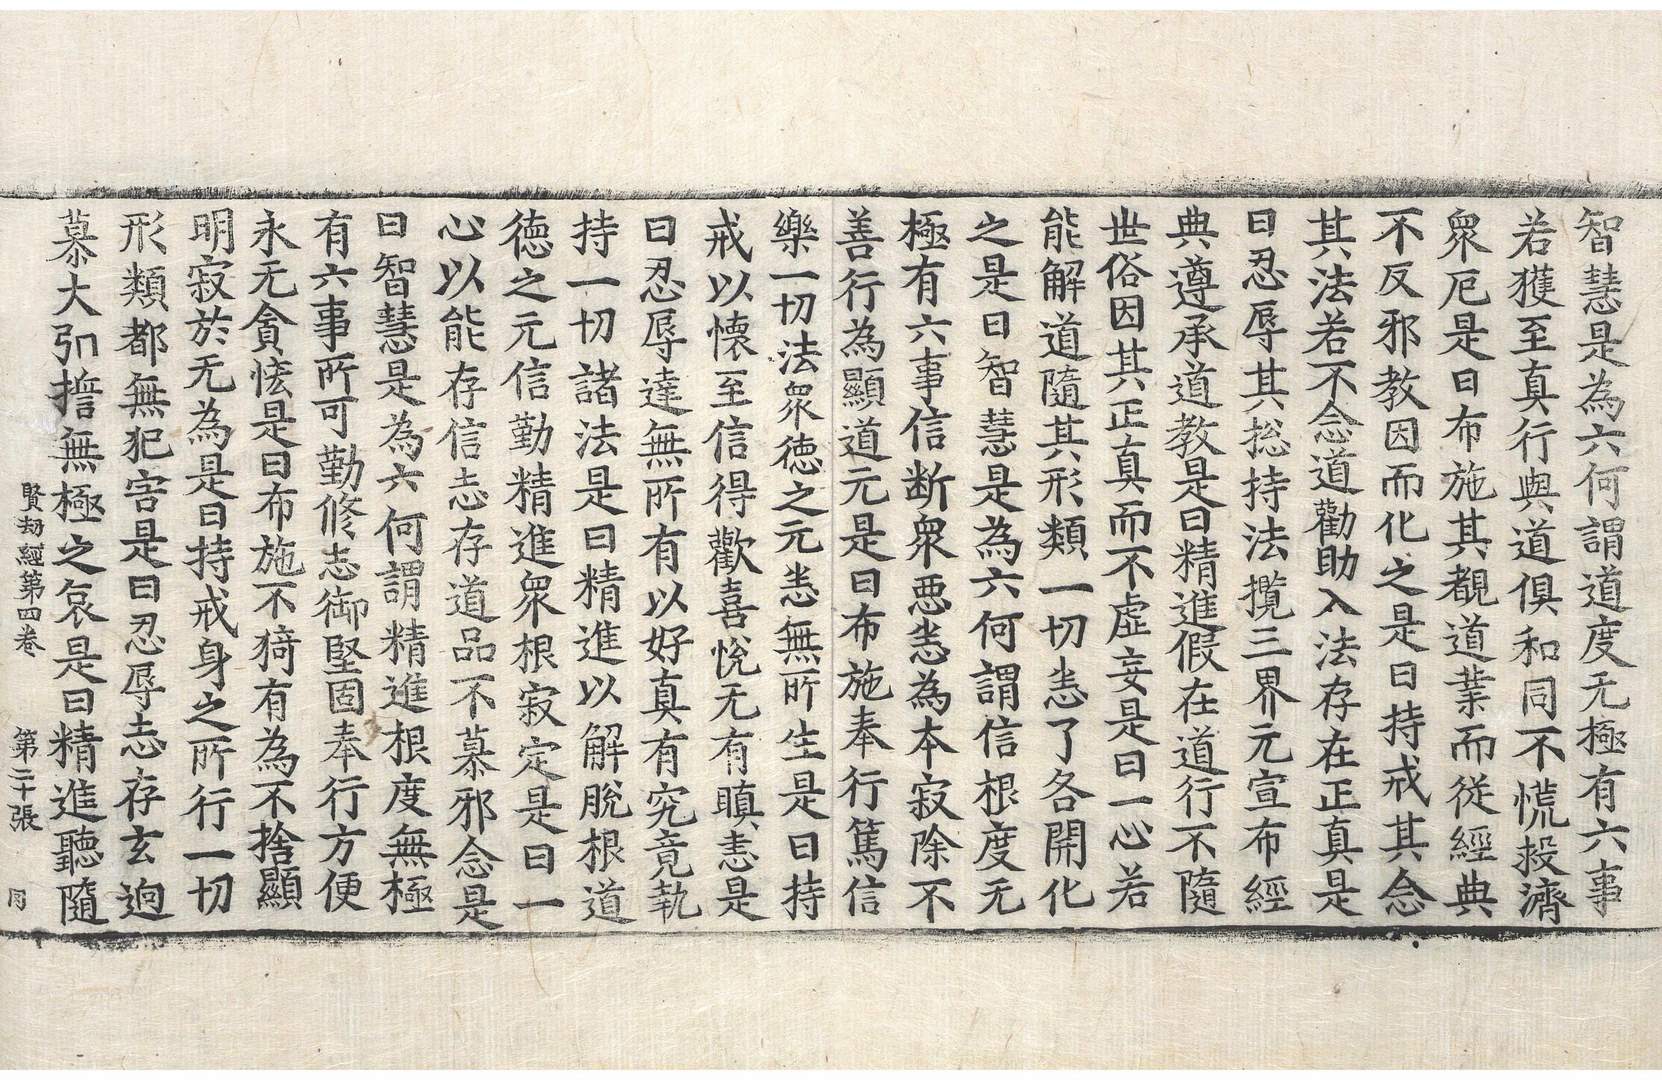 智慧是為六何謂道度无極有六事
若獲至真行與道俱和同不慌投濟
衆厄是曰布施其覩道業而從經典
不反邪教因而化之是曰持戒其念
其法若不念道勸助入法存在正真是
曰忍辱其揔持法攬三界元宣布經
典遵承道教是曰精進假在道行不隨
世俗因其正真而不虛妄是曰一心若
能解道隨其形類一切悉了各開化
之是曰智慧是為六何謂信根度无
極有六事信断衆惡悉為本寂除不
善行為顯道元是曰布施奉行篤信
樂一切法衆徳之元悉無所生是曰持
戒以懷至信得歡喜悅无有瞋恚是
曰忍辱達無所有以好真有究竟執
持一切諸法是曰精進以解脫根道
德之元信勤精進衆根寂定是曰一
心以能存信志存道品不慕邪念是
曰智慧是為六何謂精進根度無極
有六事所可勤修志御堅固奉行方便
永元貪悋是曰布施不猗有為不捨顯
明寂於无為是曰持戒身之所行一切
形類都無犯害是曰忍辱志存玄逈
慕大弘誓無極之哀是曰精進聽隨
賢劫經第四卷 第二十張 同